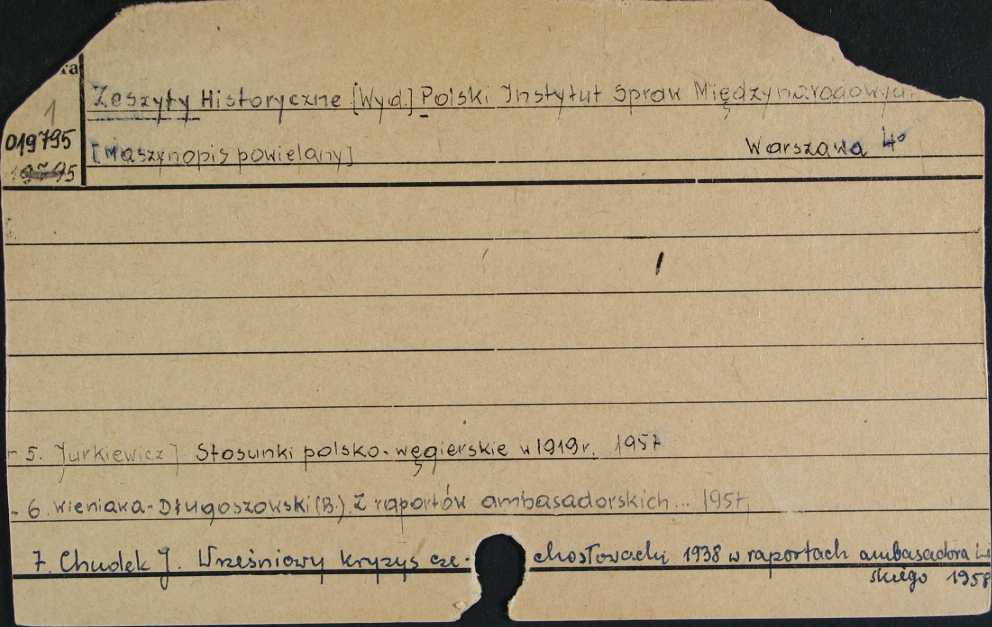 1
Zeszyty Historyczne [Wyd.] Polski Instytut Spraw
019795
[Maszynopis powielany] Warszawa 4°
5. Jurkiewicz J Stosunki polsko-węgierskie w 1919 r. 1957
6. Wieniawa-Długoszowski (B.). Z raportów ambasadorskich... 1957
7. Chudek J. Wrześniowy kryzys cze-chosłowacki 1938 w raportach ambasadora
skiego 1958